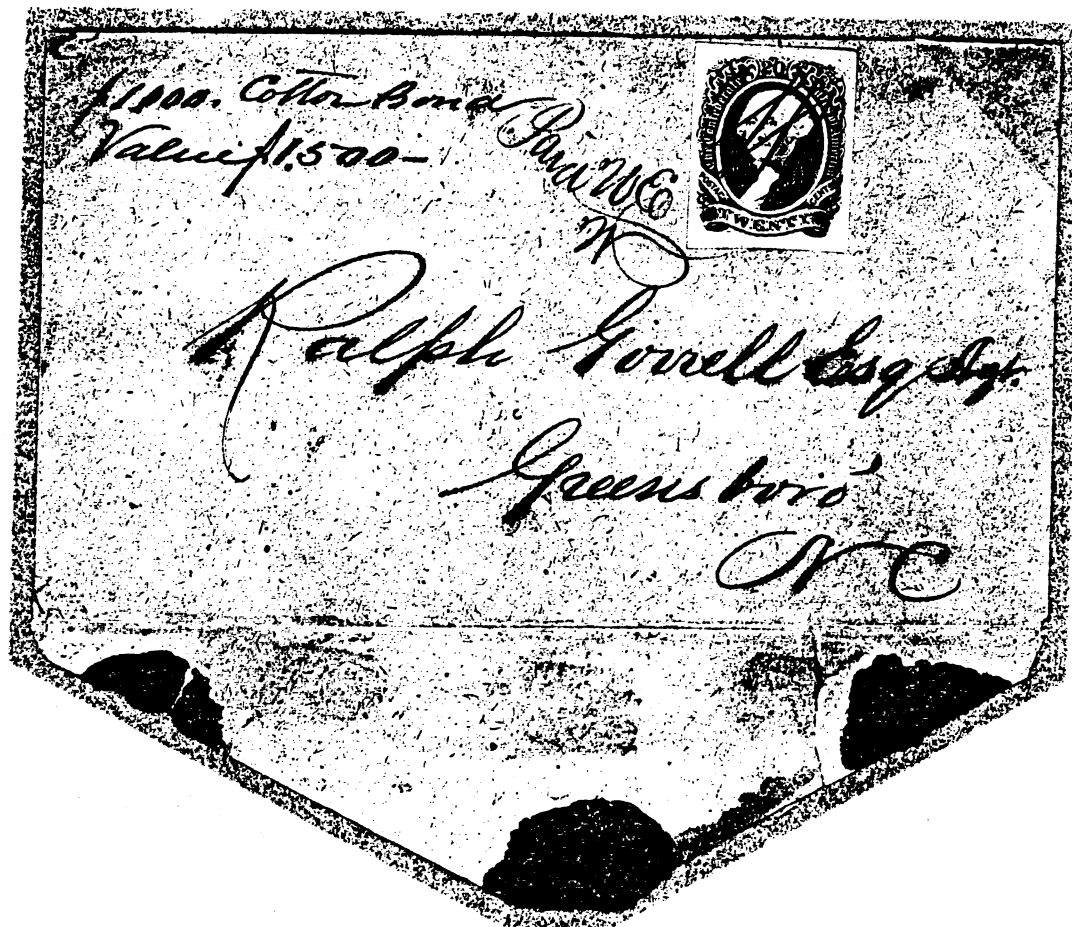 $1,000. Cotton Bond
Value $1.500-
Paid
TWENTY
Ralph Gorrell Esq Agt.
Greensboro'
N C